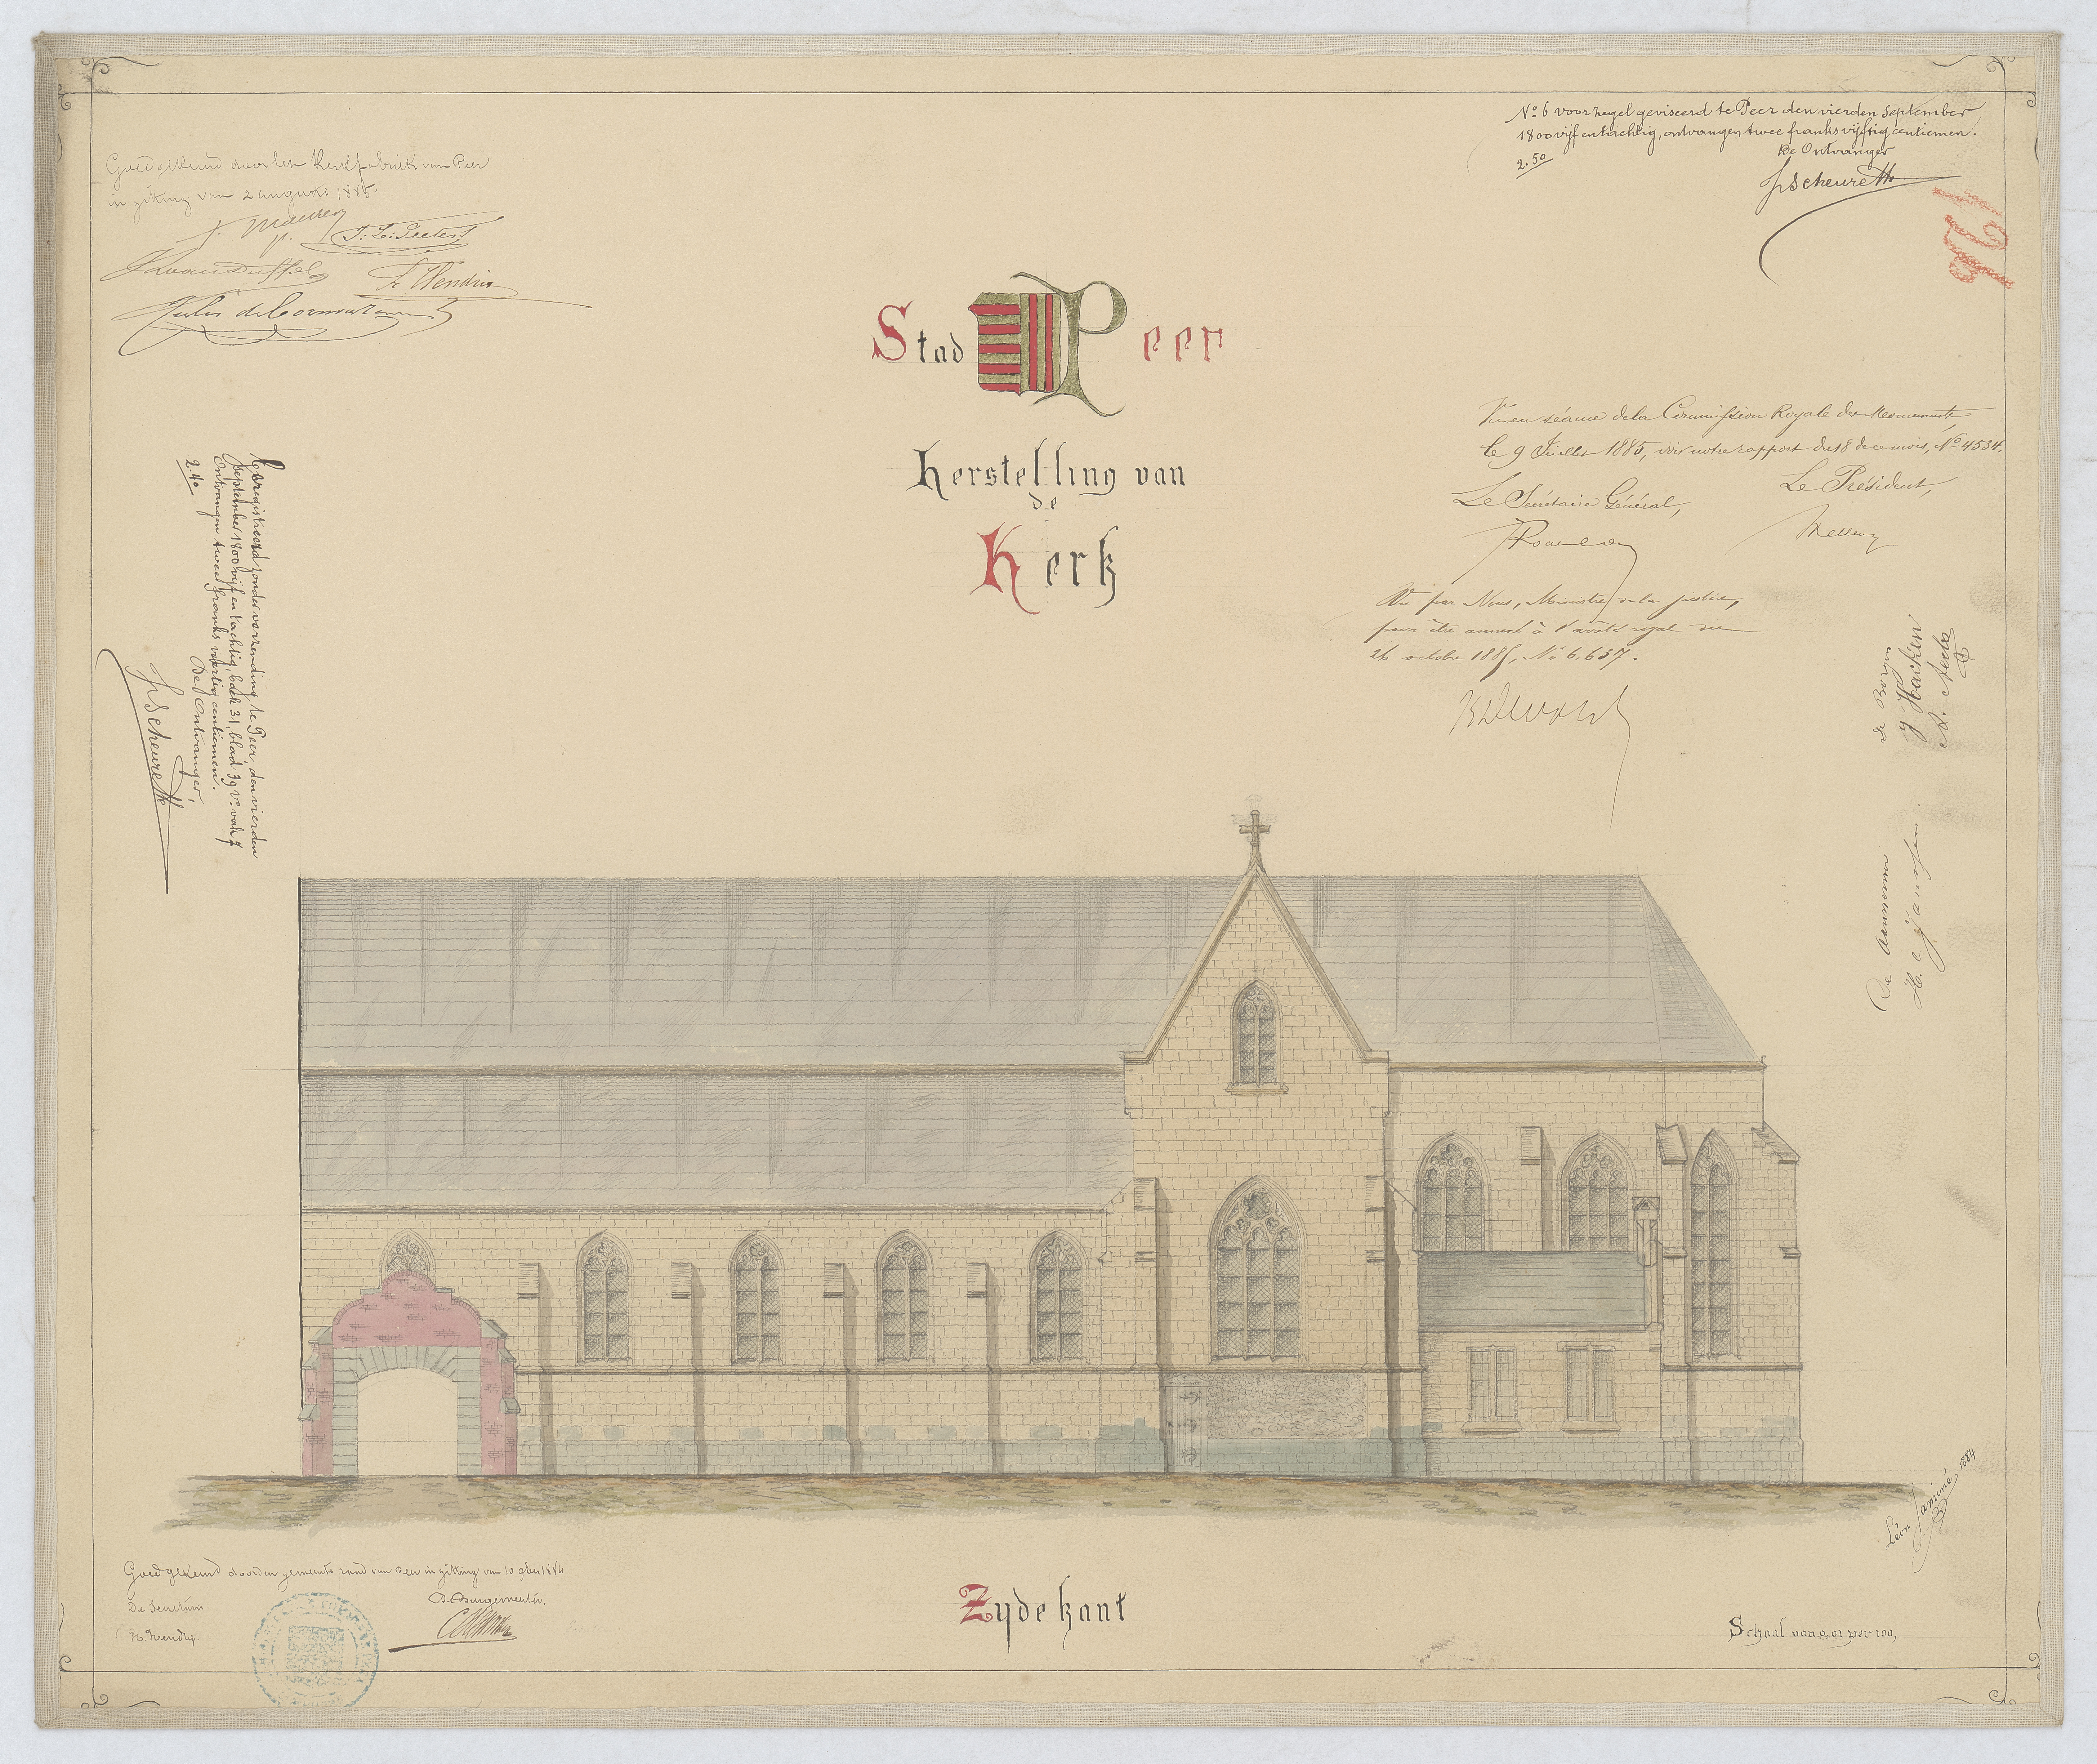 Goedgekeurd door het Kerkfabriek van Peer
in zitting van 2 augusti 1885.
J. L. Teeters
H Hendrix
Nº 6 voor zegel geviseerd te Peer den vierden September
1800 vijf en tachtig, ontvangen twee franks vijftig centiemen.
2.50
De Ontvanger
JScheurette
96
Stad Peer
Herstelling van
de
Kerk
Vu en séance de la Commission Royale des Monuments
le 9 Juillet 1885, voir notre rapport du 18 de ce mois, Nº 4534.
Le Secrétaire Général,
Le Président,
Vu par Nous, Ministre de la justice,
pour être annexé à l'arrêté royal du
26 octobre 1885, Nº 6.637.
Geregistreerd zonder verzending te Peer, den vierden
September 1800 vijf en tachtig, boek 31, blad 39 Vº vak 7
Ontvangen twee franks veertig centiemen.
2.40
De Ontvanger,
JScheurette
De Borgen
J Hacken
De Aennemer
H. C. Janssen
Léon Jaminé 1884
Goedgekeurd door den gemeente raad van Peer in zitting van 10 9ber 1884
De Secretaris
H. Hendrix
De Burgemeester.
Zydekant
Schaal van 0,01 per 100,